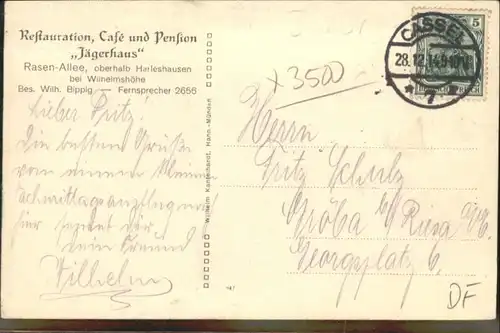 Restauration, Café und Pension
„Jägerhaus“
Rasen-Allee, oberhalb Harleshausen
bei Wilhelmshöhe
Bes. Wilh. Bippig — Fernsprecher 2656
Lieber Fritz!
Die besten Grüße
von einem kleinen
Nachmittagsausflug nach
hier sendet dir
dein Freund
Wilhelm
Wilhelm Kantelhardt, Hann.-Münden
5
CASSEL
28.12.14
* 7 *
x 3500
Herrn
Fritz Schulz
Gröba b/ Riesa a/E.
Georgplatz 6.
DF